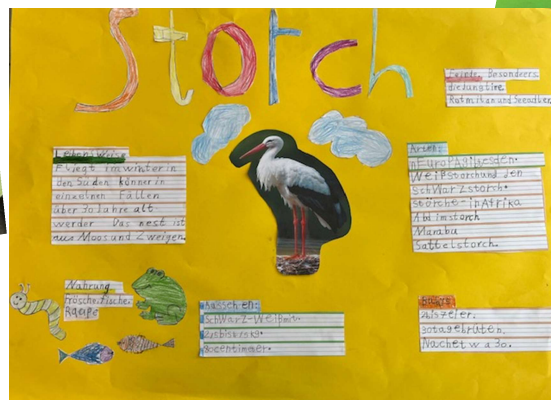 Storch
Feinde: Besonders
die Jungtire
Rotmilan und Seeadler
Lebens Weise
Fliegt im winter in
den Süden können in
einzelnen Fällen
über 30 Jahre alt
werden Das nest ist
aus Moos und Zweigen.
Arten:
in
Weißstorch und den
Schwarzstorch.
Störche in Afrika
Abdimstorch
Marabu
Sattelstorch.
Nahrung
Frösche, Fische,
Raupe
Aussehen:
Schwarz-Weiß mit

80 centimeter.
2 bis 7 eier.
30 tage brüten.